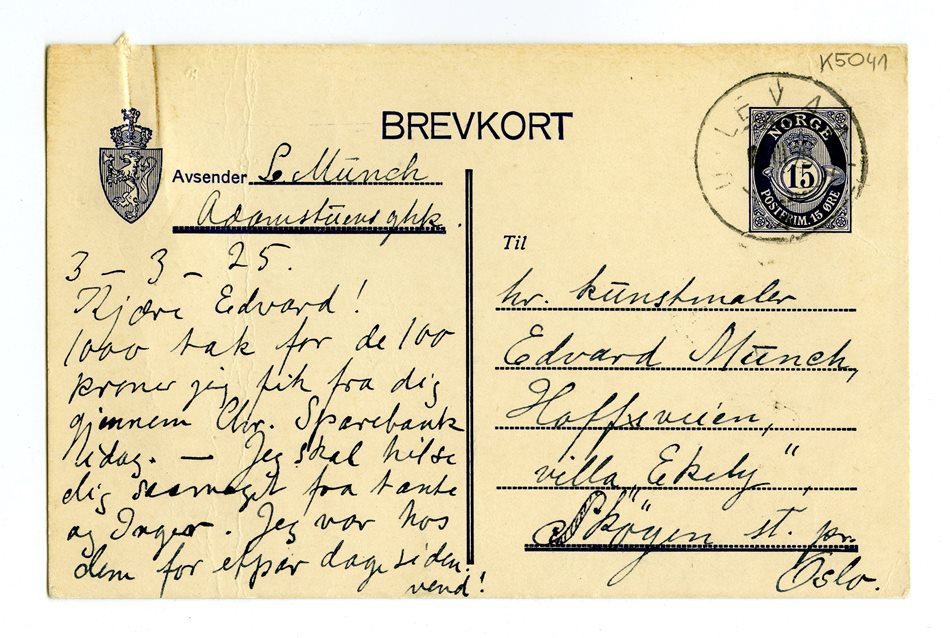 K5041
BREVKORT
NORGE
15
POSTFRIM. 15 ØRE
Avsender L. Münch
Adamstuens ghk.
3 – 3 – 25.
Kjære Edvard!
1000 tak for de 100
kroner jeg fik fra dig
gjennem Chr. Sparebank
idag. — Jeg skal hilse
dig saameget fra tante
og Inger. Jeg var hos
dem for etpar dage siden.
vend!
Til
hr. kunstmaler
Edvard Münch,
Hoffsveien,
villa „Ekely",
Skøyen st. pr.
Oslo.